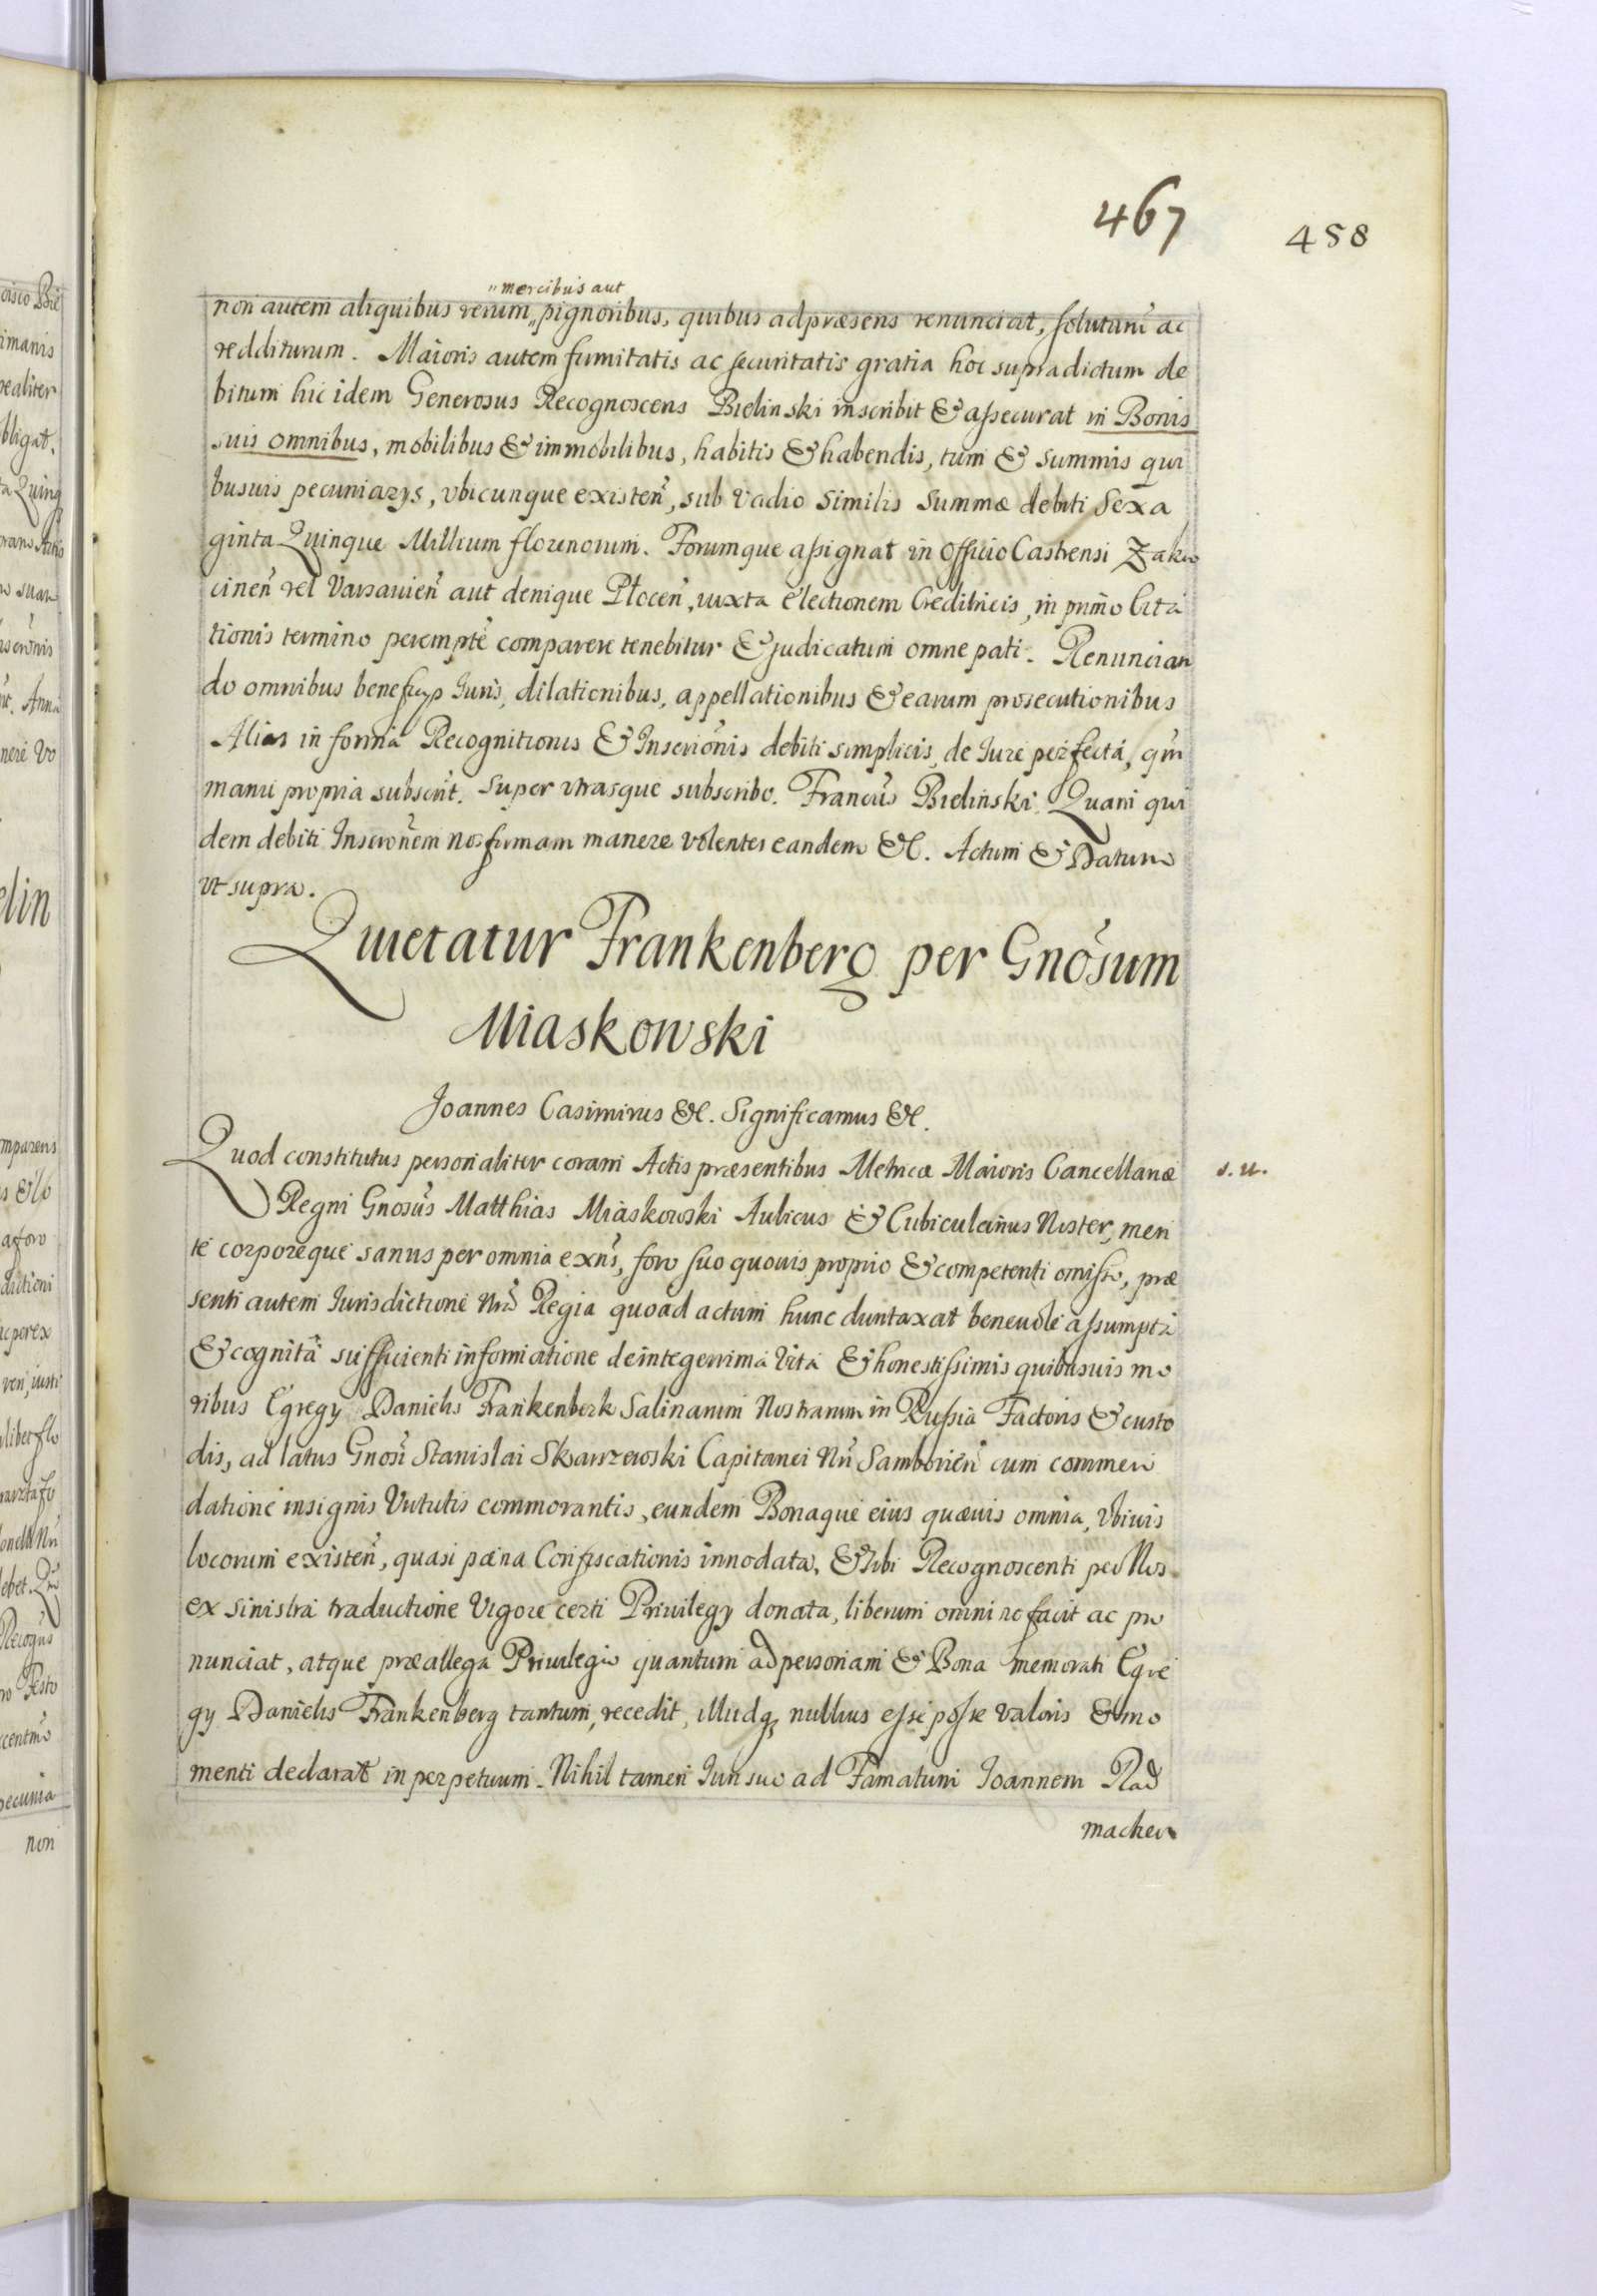 467
458
„mercibus aut
non autem aliquibus rerum „pignoribus, quibus ad præsens renunciat, solutum ac
redditurum. Maioris autem firmitatis ac securitatis gratia hoc supradictum de
bitum hic idem Generosus Recognoscens Bielinski inscribit & assecurat in Bonis
suis omnibus, mobilibus & immobilibus, habitis & habendis, tum & summis qui
busuis pecuniarys, vbicunque existeñ, sub vadio similis summæ debiti Sexa
ginta Quinque Millium florenorum. Forumque assignat in Officio Castrensi Zakro
cineñ vel Varsauieñ aut denique Płoceñ, iuxta electionem Creditricis, in primo Cita
tionis termino perempte comparere tenebitur & judicatum omne pati. Renuncian
do omnibus beneficys Iuris, dilationibus, appellationibus & earum prosecutionibus
Alias in forma Recognitionis & Inscriõnis debiti simplicis, de Iure perfectâ, qm
manu propria subscrit. Super vtrasque subscribo. Franciũs Bielinski Quam qui
dem debiti Inscriõnem nos firmam manere volentes eandem &c. Actum & Datum
vt supra.
Quietatur Frankenberg per Gnõsum
Miaskowski
Joannes Casimirus &c. Significamus &c.
Quod constitutus personaliter coram Actis præsentibus Metricæ Maioris Cancellariæ
s. u.
Regni Gnosũs Matthias Miaskowski Aulicus & Cubicularius Noster, men
te corporeque sanus per omnia exñs, foro suo quouis proprio & competenti omisso, præ
senti autem Iurisdictione Nrã Regia quoad actum hunc duntaxat beneuole assumpta
& cognitâ sufficienti informatione de integerrima vita & honestissimis quibusuis mo
ribus Egregy Danielis Frankenberk Salinarum Nostrarum in Russia Factoris & custo
dis, ad latus Gnosi Stanislai Skarszewski Capitanei Nri Samborieñ cum commen
datione insignis Virtutis commorantis, eundem Bonaque eius quæuis omnia, Vbiuis
locorum existeñ, quasi pœna Confiscationis innodata, & sibi Recognoscenti per Nos
ex sinistra traductione Vigore certi Priuilegy donata, liberum omnino facit ac pro
nunciat, atque præallega Priuilegio quantum ad personam & Bona memorati Egre
gy Danielis Frankenberg tantum, recedit, illudq; nullius esse posse valoris & mo
menti declarat in perpetuum. Nihil tamen Iuri suo ad Famatum Ioannem Rad
macher